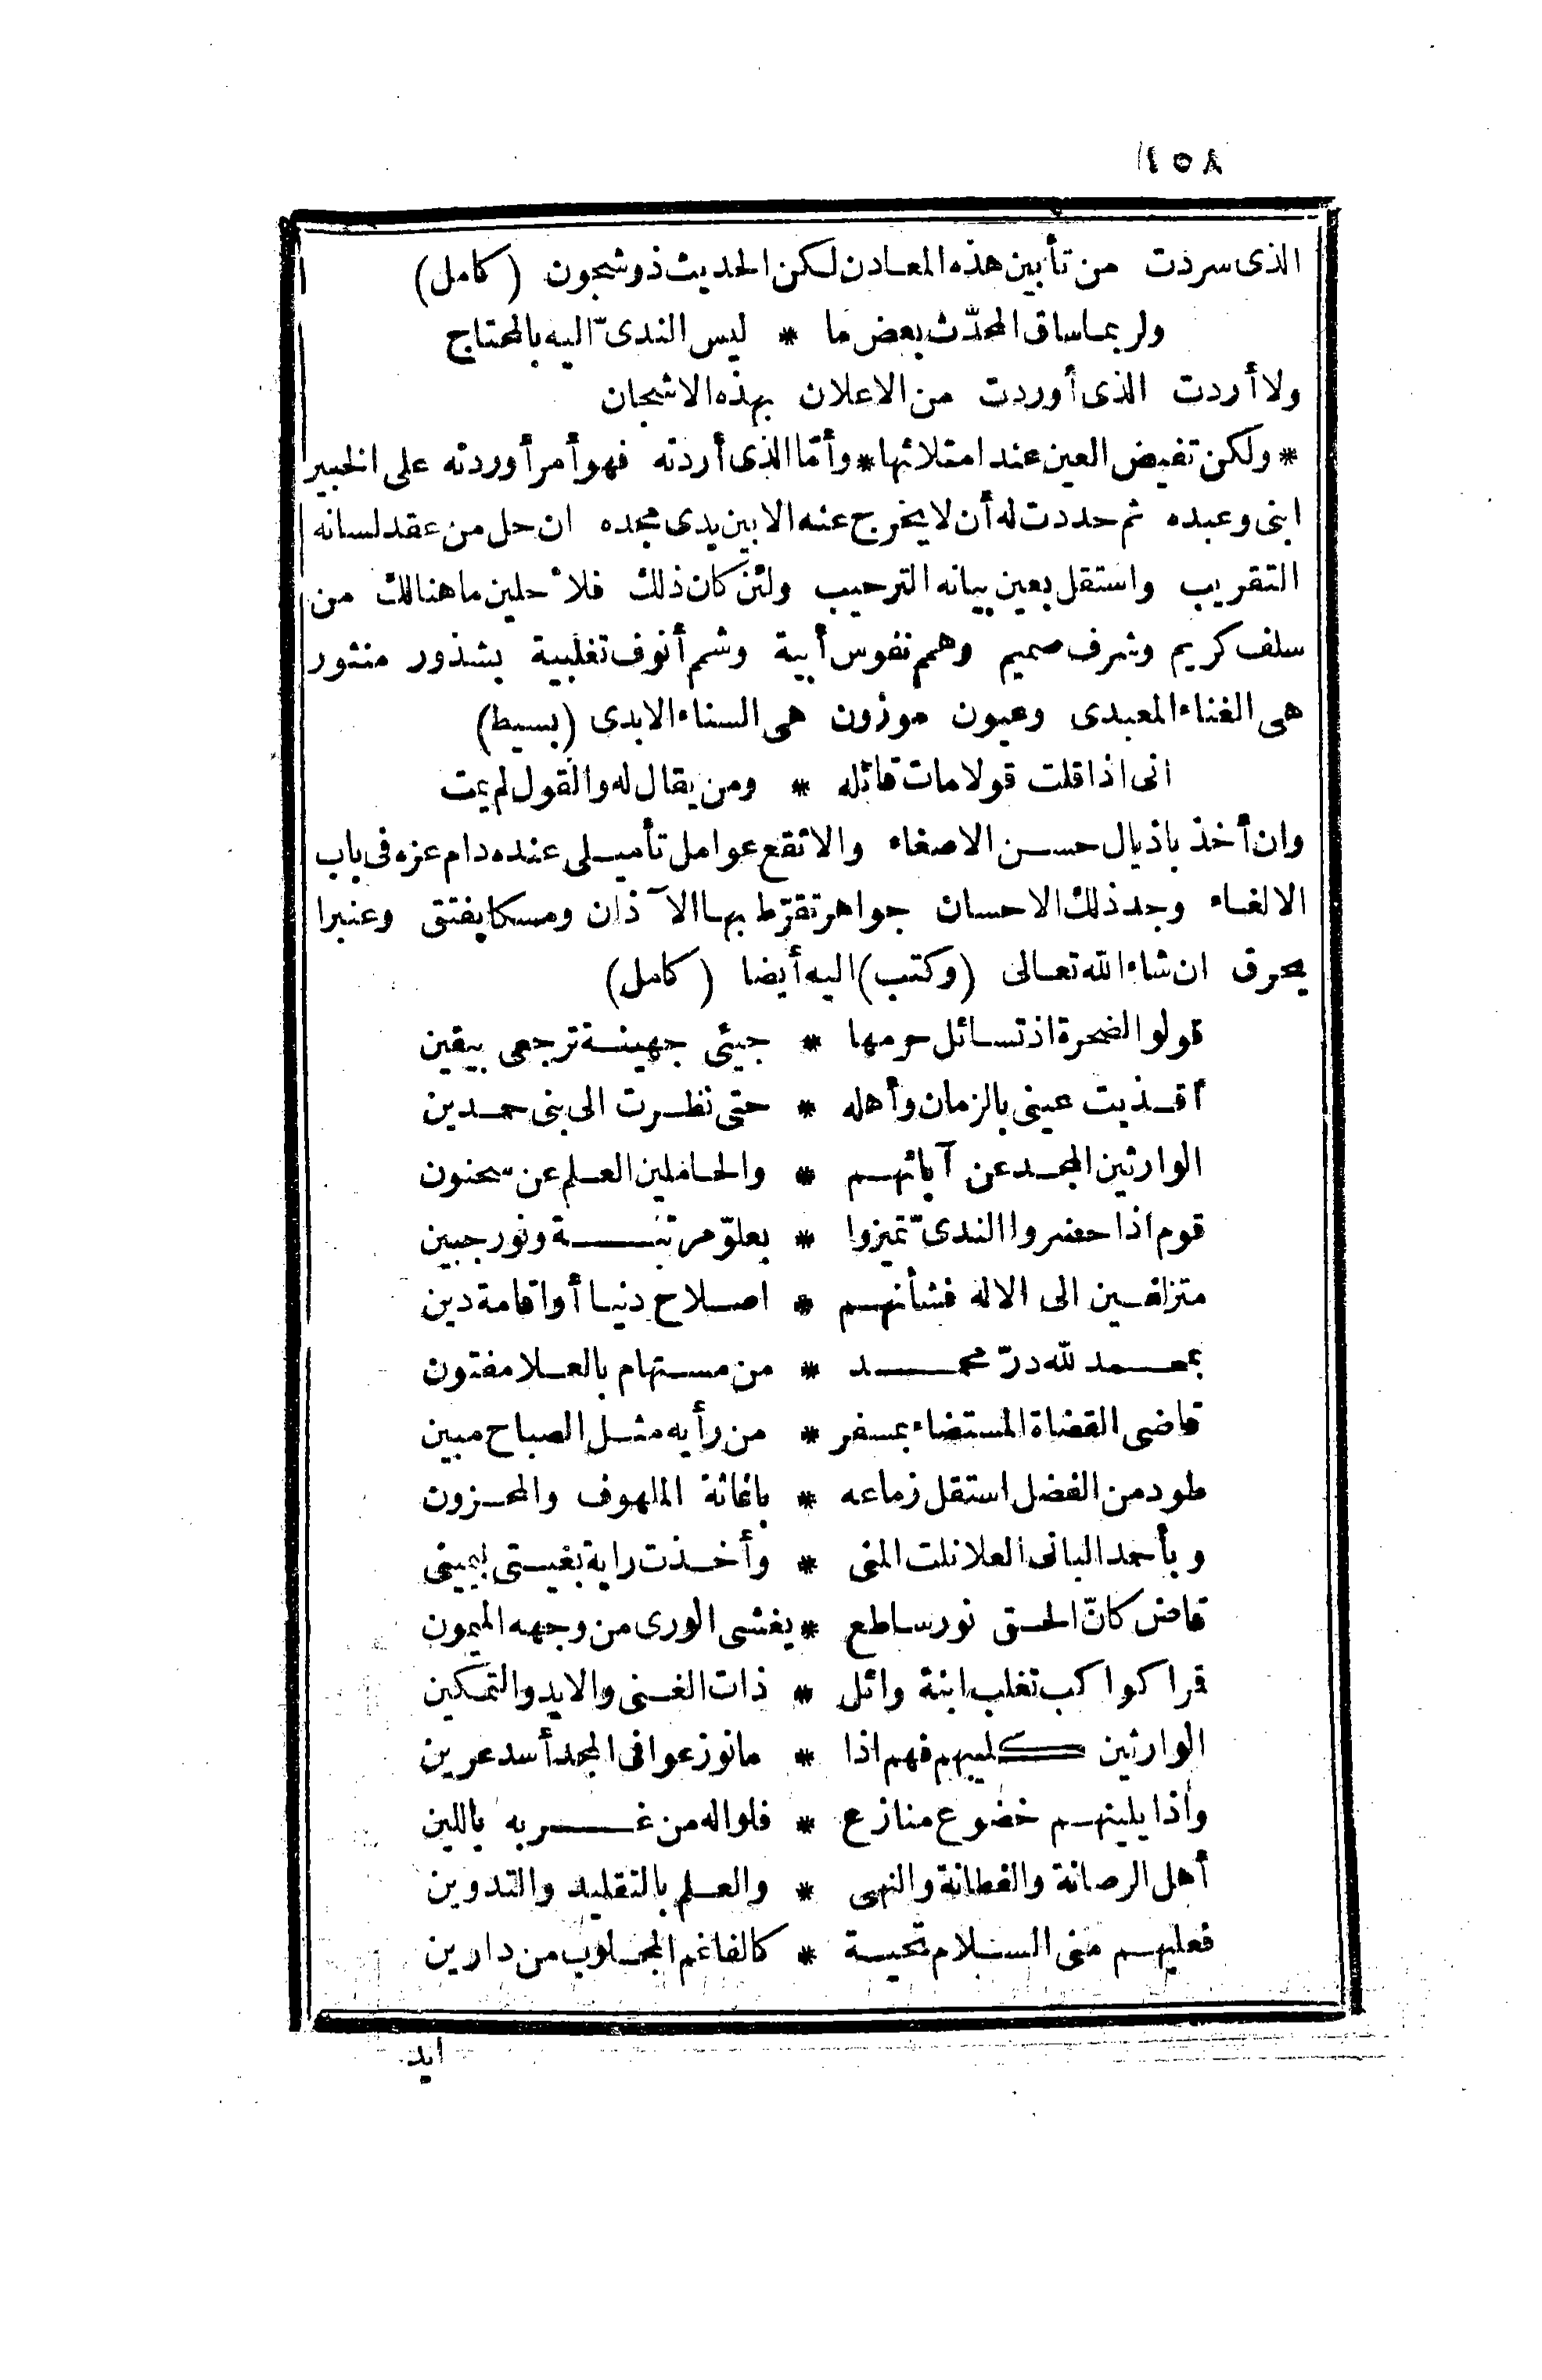 ٤٥٨
الذى سردت من تأبين هذه المعادن لكن الحديث ذو شجون (كامل)
ولربما ساق المحدّث بعض ما * ليس الندىّ اليه بالمحتاج
ولا أردت الذى أوردت من الاعلان بهذه الاشجان
* ولكن تفيض العين عند امتلائها * وأمّا الذى أردته فهو أمر أوردته على الخبير
ابنى وعبده ثم حددت له أن لا يخرج عنه الا بين يدى مجده ان حل من عقد لسانه
التقريب واستقل بعين بيانه الترحيب ولئن كان ذلك فلأحلين ما هنالك من
سلف كريم وشرف صميم وهمم نفوس أبية وشم أنوف تغلبية بشذور منثور
هى الغناء المعبدى وعيون موزون هى السناء الابدى (بسيط)
انى اذا قلت قولا مات قائله * ومن يقال له والقول لم يمت
وان أخذ باذيال حسن الاصغاء والاتقع عوامل تأميلى عنده دام عزه فى باب
الالغاء وجد ذلك الاحسان جواهر تقرّط بها الآذان ومسكا يفتق وعنبرا
يحرق ان شاء الله تعالى (وكتب) اليه أيضا (كامل)
قولوا لضحرة اذ تسائل حرمها * جيئى جهينة ترجعى بيقين
أقذيت عينى بالزمان وأهله * حتى نظرت الى بنى حمدين
الوارثين المجد عن آبائهم * والحاملين العلم عن سحنون
قوم اذا حضروا الندىّ تميزوا * بعلوّ مرتبة ونور جبين
متزلفين الى الاله فشأنهم * اصلاح دنيا أو اقامة دين
بمحمد لله درّ محمد * من مستهام بالعلا مفتون
قاضى القضاة المستضاء بمسفر * من رأيه مثل الصباح مبين
طود من الفضل استقل زماعه * باغاثة الملهوف والمحزون
وبأحمد البانى العلا نلت المنى * وأخذت راية بغيتى بيمينى
قاض كانّ الحق نور ساطع * يغشى الورى من وجهه الميمون
قرا كواكب تغلب ابنة وائل * ذات الغنى والايد والتمكين
الوارثين كليبهم فهم اذا * ما نوزعوا فى المجد أسد عرين
واذا يلينهم خضوع منازع * فلواله من غربه باللين
أهل الرصانة والفطانة والنهى * والعلم بالتقليد والتدوين
فعليهم منى السلام تحية * كالفاغم المجلوب من دارين
ايد